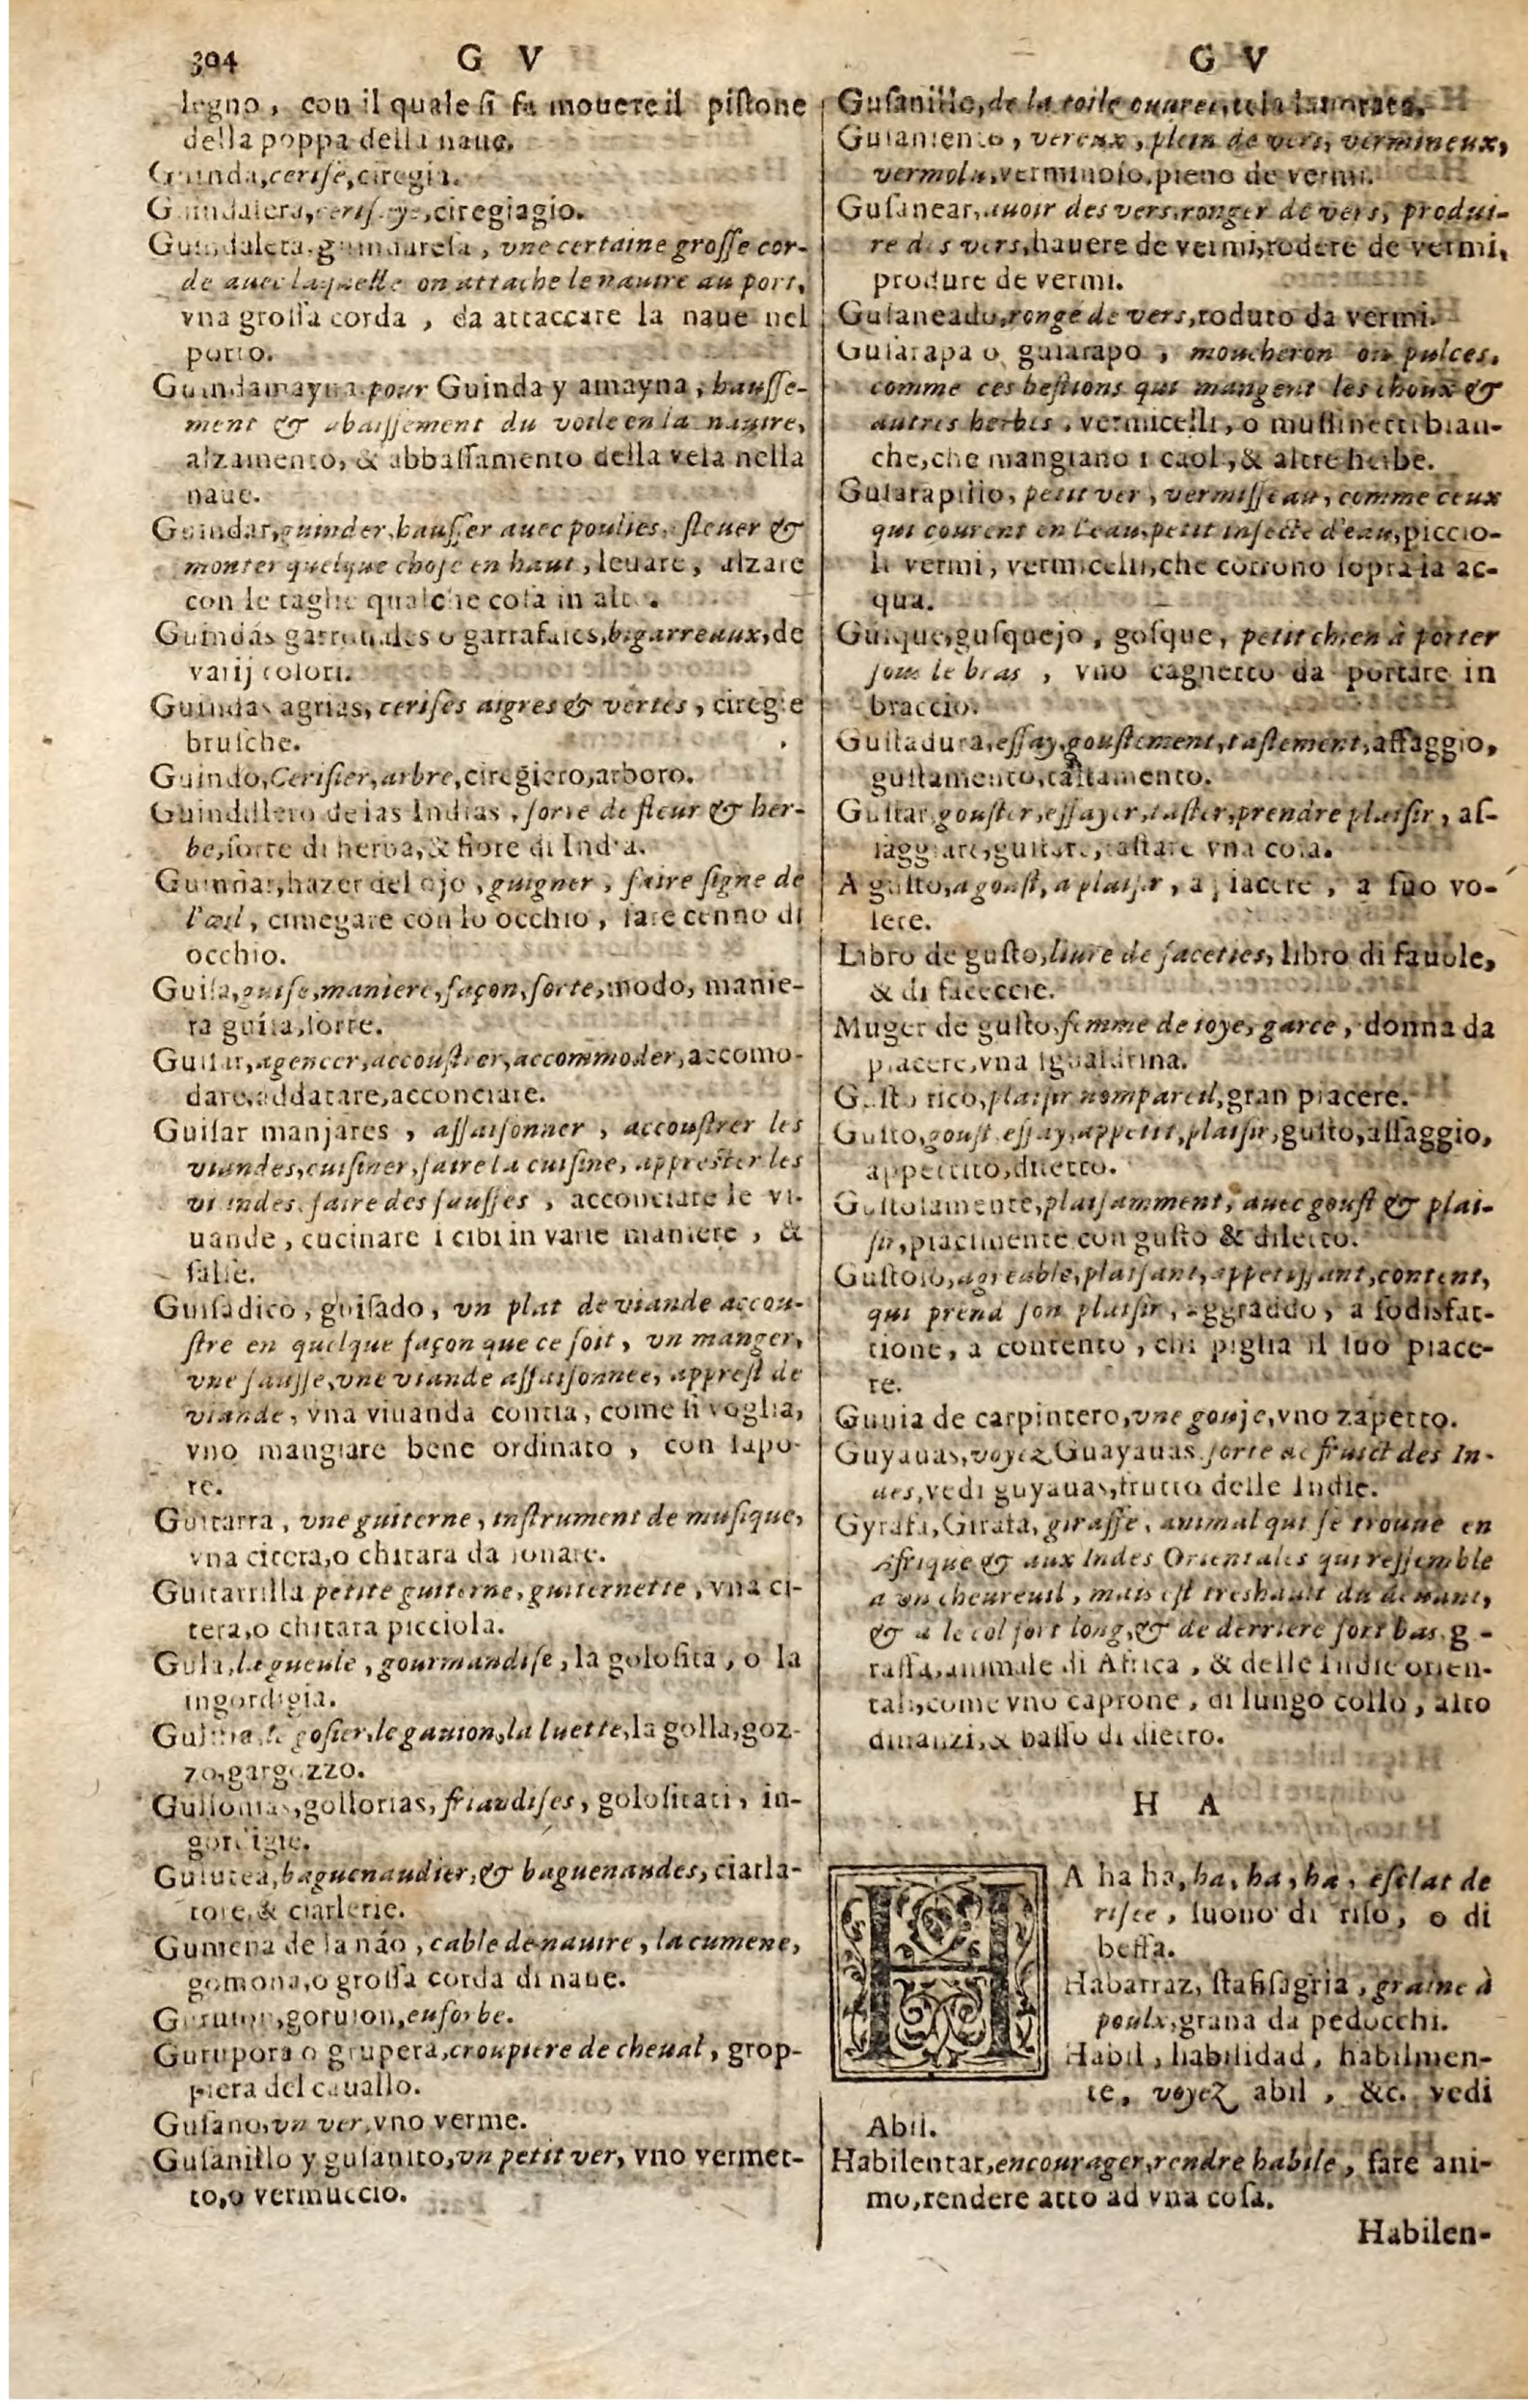 304 G V
legno, con il quale si fa mouere il pistone
della poppa della naue.
Guinda, cerise, ciregia.
Guindalera, cerisaye, ciregiagio.
Guindaleta. guindaresa, vne certaine grosse cor-
de auec laquelle on attache le nauire au port,
vna grossa corda, da attaccare la naue nel
porto.
Guindamayna pour Guinda y amayna, hausse-
ment & abaissement du voile en la nauire,
alzamento, & abbassamento della vela nella
naue.
Guindar, guinder, hausser auec poulies, esleuer &
monter quelque chose en haut, leuare, alzare
con le taglie qualche cosa in alto.
Guindas garrofales o garrafales, bigarreaux, de
varij colori.
Guindas agrias, cerises aigres & vertes, ciregie
brusche.
Guindo, Cerisier, arbre, ciregiero, arboro.
Guindillero de las Indias, sorte de fleur & her-
be, sorte di herba, & fiore di India.
Guiñar, hazer del ojo, guigner, faire signe de
l'œil, cinnegare con lo occhio, fare cenno di
occhio.
Guisa, guise, maniere, façon, sorte, modo, manie-
ra guisa, sorte.
Guisar, agencer, accoustrer, accommoder, accomo-
dare, addatare, acconciare.
Guisar manjares, assaisonner, accoustrer les
viandes, cuisiner, faire la cuisine, apprester les
viandes. faire des sausses, acconciare le vi-
uande, cucinare i cibi in varie maniere, &
salse.
Guisadico, guisado, vn plat de viande accou-
stre en quelque façon que ce soit, vn manger,
vne sausse, vne viande assaisonnee, apprest de
viande, vna viuanda contia, come si voglia,
vno mangiare bene ordinato, con sapo-
re.
Guitarra, vne guiterne, instrument de musique,
vna citera, o chitara da sonare.
Guitarrilla petite guiterne, guiternette, vna ci-
tera, o chitara picciola.
Gula, la gueule, gourmandise, la golosita, o la
ingordigia.
Gulmia, le gosier, le gauion, la luette, la golla, goz-
zo, gargozzo.
Gullorias, gollorias, friandises, golositati, in-
gordigie.
Gulutea, baguenaudier, & baguenaudes, ciarla-
tore, & ciarlerie.
Gumena de la náo, cable de nauire, la cumene,
gomona, o grossa corda di naue.
gorujon, euforbe.
Gurupora o grupera, croupiere de cheual, grop-
piera del cauallo.
Gusano, vn ver, vno verme.
Gusanillo y gusanito, vn petit ver, vno vermet-
to, o vermuccio.
G V
Gusanillo, de la toile ouuree, tela lauorata.
Gusaniento, vereux, plein de vers, vermineux,
vermolu, verminoso, pieno de vermi.
Gusanear, auoir des vers. ronger de vers, produi-
re des vers, hauere de vermi, rodere de vermi,
produre de vermi.
Gusaneado, rongé de vers, roduto da vermi.
Gusarapa o gusarapo, moucheron ou pulces,
comme ces bestions qui mangent les choux &
autres herbes, vermicelli, o mussinetti bian-
che, che mangiano i caoli, & altre herbe.
Gusarapillo, petit ver, vermisseau, comme ceux
qui courent en l'eau, petit insecte d'eau, piccio-
li vermi, vermicelli, che corrono sopra la ac-
qua.
Gusque, gusquejo, gosque, petit chien à porter
sous le bras, vno cagnetto da portare in
braccio.
Gustadura, essay, goustement, tastement, assaggio,
gustamento, tastamento.
Gustar, gouster, essayer, taster, prendre plaisir, as-
saggiare, gustare, tastare vna cosa.
A gusto, a goust, a plaisir, a piacere, a suo vo-
lere.
Libro de gusto, liure de faceties, libro di fauole,
& di faceccie.
Muger de gusto, femme de ioye, garce, donna da
piacere, vna sgualdrina.
Gusto rico, plaisir nompareil, gran piacere.
Gusto, goust, essay, appetit, plaisir, gusto, assaggio,
appettito, diletto.
Gustosamente, plaisamment, auec goust & plai-
sir, piacimente con gusto & diletto.
Gustoso, agreable, plaisant, appetissant, content,
qui prend son plaisir, aggraddo, a sodisfat-
tione, a contento, chi piglia il suo piace-
re.
Guuia de carpintero, vne gouje, vno zapetto.
Guyauas, voyez Guayauas sorte de fruict des In-
des, vedi guyauas, frutto delle Indie.
Gyrafa, Girafa, giraffe, animal qui se trouue en
Afrique & aux Indes Orientales qui ressemble
a vn cheureuil, mais est treshault du deuant,
& a le col fort long, & de derriere fort bas, gi-
raffa, animale di Africa, & delle Indie orien-
tali, come vno caprone, di lungo collo, alto
dinanzi, & basso di dietro.
H A
HA ha ha, ha, ha, ha, esclat de
risee, suono di riso, o di
beffa.
Habarraz, stafisagria, graine à
poulx, grana da pedocchi.
Habil, habilidad, habilmen-
te, voyez abil, &c. vedi
Abil.
Habilentar, encourager, rendre habile, fare ani-
mo, rendere atto ad vna cosa.
Habilen-